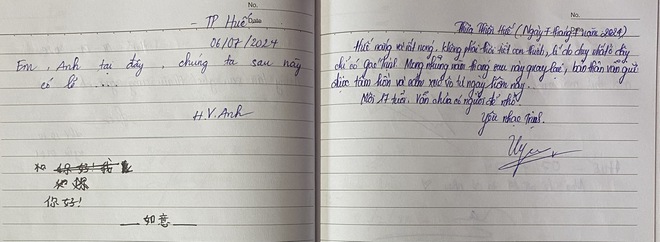 No.
Date
- TP Huế
06/07/2024
Em, Anh tại đây, chúng ta sau này
có lẽ ....
H.V.Anh
你好!
如意
No.
Thừa Thiên Huế (Ngày 7 tháng 7 năm 2024)
Huế nóng và rất nóng. Không phải thời tiết con người, lí do duy nhất ở đây
chỉ có "gác Trịnh". Mong những năm tháng sau này quay lại, bản thân vẫn giữ
được tâm hồn và cảm xúc như ngày hôm nay.
Mới 17 tuổi. Vẫn chưa có người để nhớ
Yêu nhạc Trịnh.
Uyên